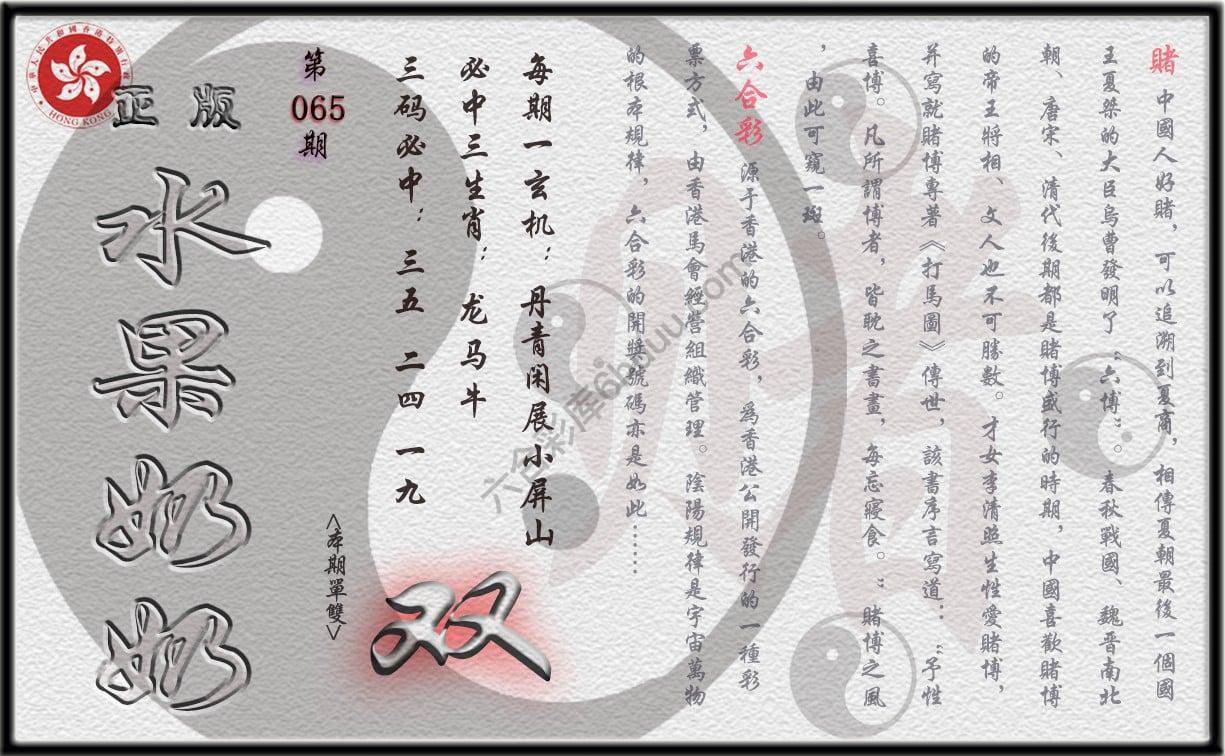 賭 中國人好賭，可以追溯到夏商，相傳夏朝最後一個國
王夏桀的大臣烏曹發明了“六博”。春秋戰國、魏晋南北
朝、唐宋、清代後期都是賭博盛行的時期，中國喜歡賭博
的帝王將相、文人也不可勝數。才女李清照生性愛賭博，
并寫就賭博專著《打馬圖》傳世，該書序言寫道：“予性
喜博。凡所謂博者，皆耽之書畫，每忘寢食。”賭博之風
，由此可窺一斑。
六合彩 源于香港的六合彩，爲香港公開發行的一種彩
票方式，由香港馬會經營組織管理。陰陽規律是宇宙萬物
的根本規律，六合彩的開獎號碼亦是如此……
每期一玄机：丹青闲展小屏山
必中三生肖：龙马牛
三码必中：三五 二四 一九
<本期單雙>
双
第
065
期
正版
水果奶奶
中華人民共和國香港特別行政區
HONG KONG
六合彩库6bduu.com